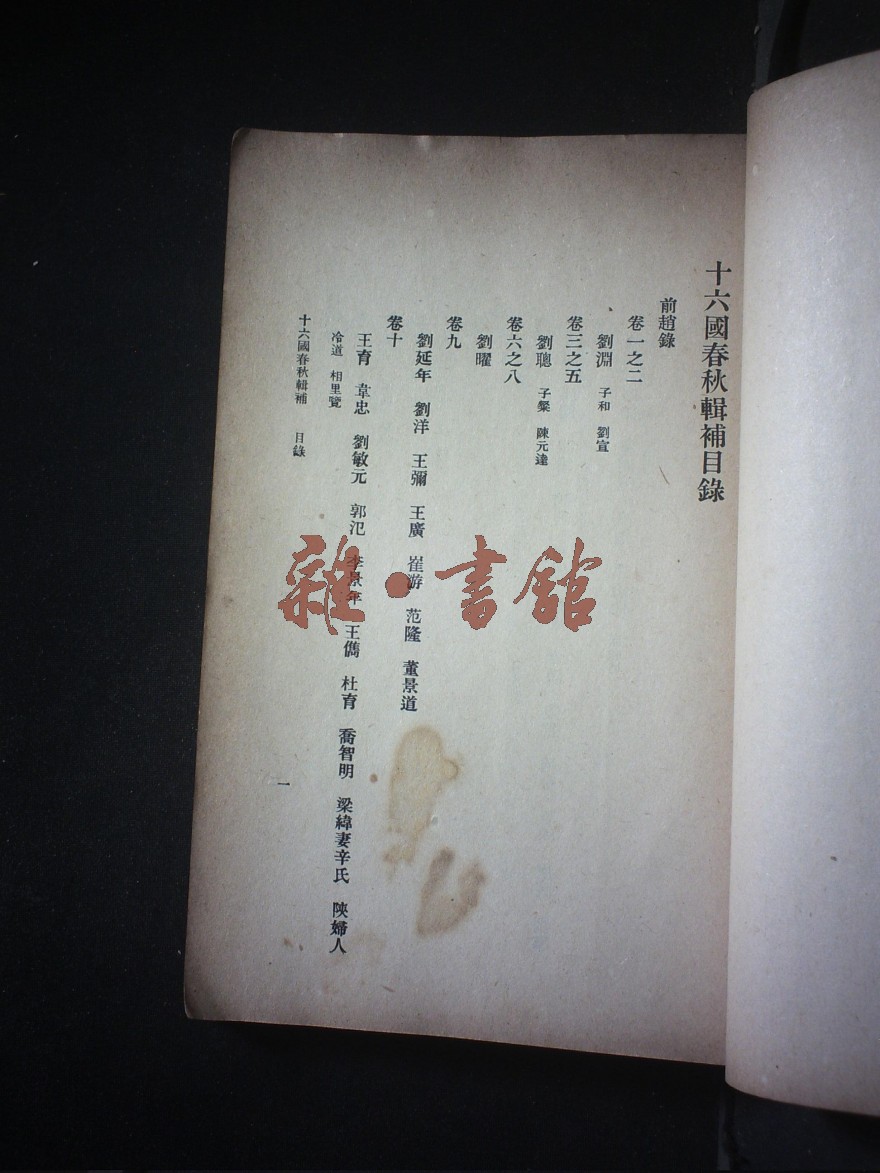 十六國春秋輯補目錄
前趙錄
卷一之二
劉淵 子和 劉宣
卷三之五
劉聰 子粲 陳元達
卷六之八
劉曜
卷九
劉延年 劉洋 王彌 王廣 崔游 范隆 董景道
卷十
王育 韋忠 劉敏元 郭汜 李景年 王儁 杜育 喬智明 梁緯妻辛氏 陝婦人
冷道 相里覽
十六國春秋輯補 目錄
一
雜·書館